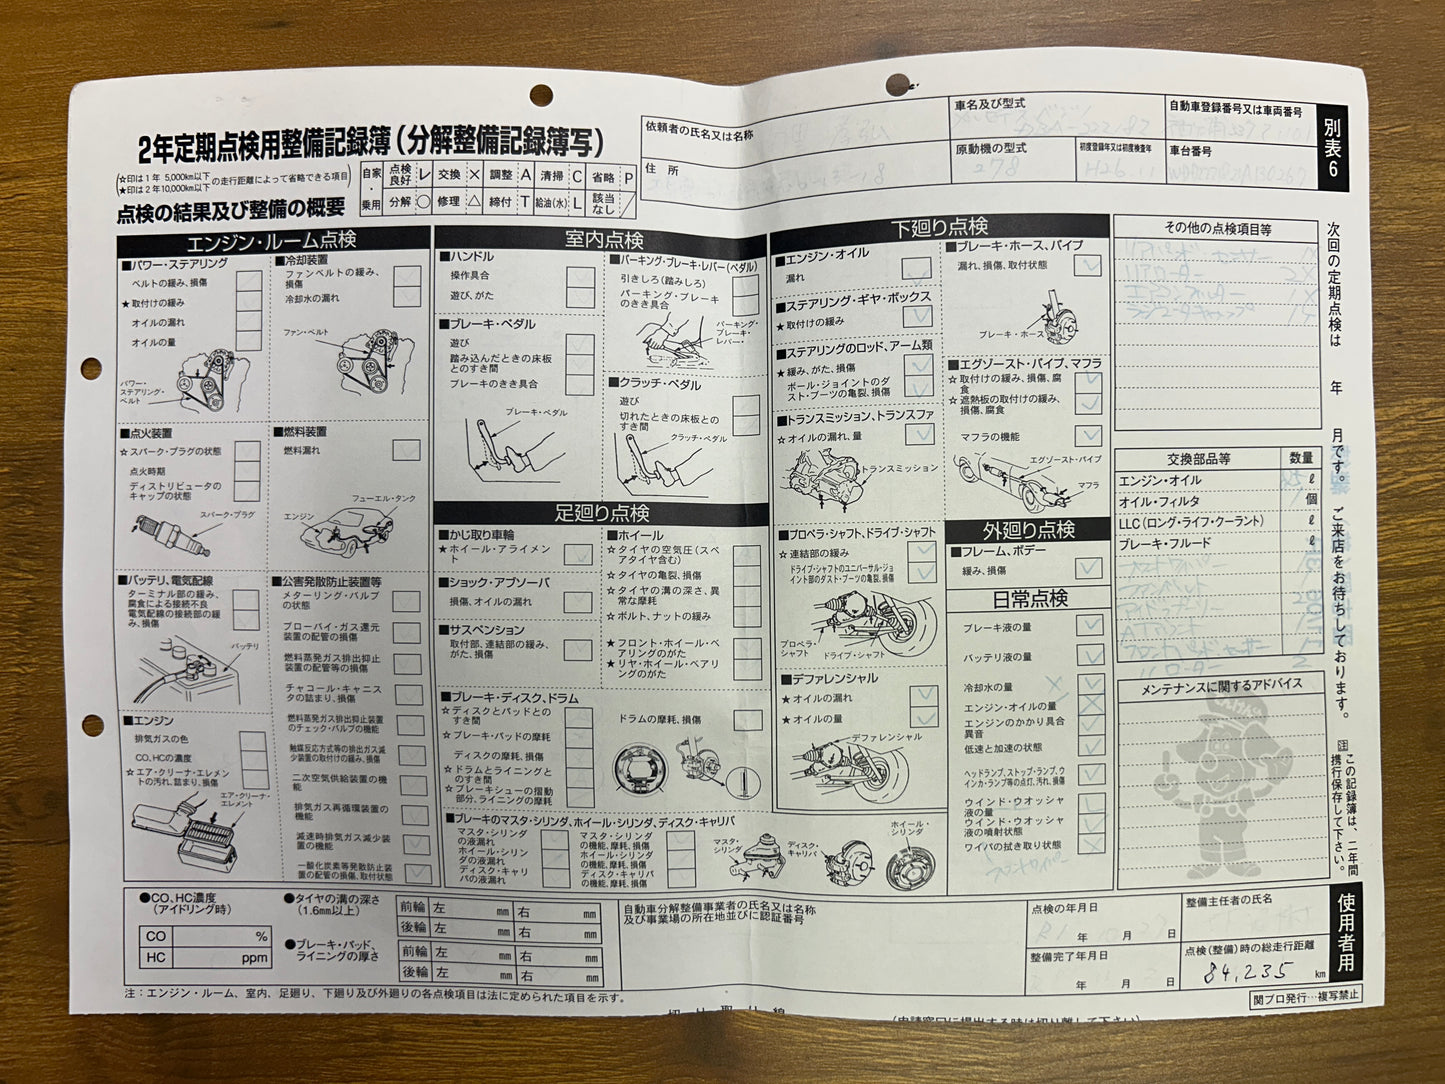 2年定期点検用整備記録簿(分解整備記録簿写)
☆印は1年 5,000km以下
★印は2年10,000km以下
の走行距離によって省略できる項目
点検の結果及び整備の概要
自家・乗用
点検良好 レ 交換 × 調整 A 清掃 C 省略 P
分解 ○ 修理 △ 締付 T 給油(水) L 該当なし /
依頼者の氏名又は名称
住所
車名及び型式
自動車登録番号又は車両番号
原動機の型式
278
初度登録年又は初度検査年
H26.11
車台番号
別表6
エンジン・ルーム点検
■パワー・ステアリング
ベルトの緩み、損傷
★取付けの緩み
オイルの漏れ
オイルの量
パワー・ステアリング・ベルト
■冷却装置
ファンベルトの緩み、損傷
冷却水の漏れ
ファン・ベルト
■点火装置
☆スパーク・プラグの状態
点火時期
ディストリビュータのキャップの状態
スパーク・プラグ
■燃料装置
燃料漏れ
フューエル・タンク
エンジン
■バッテリ、電気配線
ターミナル部の緩み、腐食による接続不良
電気配線の接続部の緩み、損傷
バッテリ
■エンジン
排気ガスの色
CO、HCの濃度
☆エア・クリーナ・エレメントの汚れ、詰まり、損傷
エア・クリーナ・エレメント
■公害発散防止装置等
メターリング・バルブの状態
ブローバイ・ガス還元装置の配管の損傷
燃料蒸発ガス排出抑止装置の配管等の損傷
チャコール・キャニスタの詰まり、損傷
燃料蒸発ガス排出抑止装置のチェック・バルブの機能
触媒反応方式等の排出ガス減少装置の取付けの緩み、損傷
二次空気供給装置の機能
排気ガス再循環装置の機能
減速時排気ガス減少装置の機能
一酸化炭素等発散防止装置の配管の損傷、取付状態
室内点検
■ハンドル
操作具合
遊び、がた
■ブレーキ・ペダル
遊び
踏み込んだときの床板とのすき間
ブレーキのきき具合
ブレーキ・ペダル
■パーキング・ブレーキ・レバー(ペダル)
引きしろ(踏みしろ)
パーキング・ブレーキのきき具合
パーキング・ブレーキ・レバー・
■クラッチ・ペダル
遊び
切れたときの床板とのすき間
クラッチ・ペダル
足廻り点検
■かじ取り車輪
★ホイール・アライメント
■ショック・アブソーバ
損傷、オイルの漏れ
■サスペンション
取付部、連結部の緩み、がた、損傷
■ホイール
☆タイヤの空気圧(スペアタイヤ含む)
☆タイヤの亀裂、損傷
☆タイヤの溝の深さ、異常な摩耗
☆ボルト、ナットの緩み
★フロント・ホイール・ベアリングのがた
★リヤ・ホイール・ベアリングのがた
■ブレーキ・ディスク、ドラム
☆ディスクとパッドとのすき間
☆ブレーキ・パッドの摩耗
ディスクの摩耗、損傷
☆ドラムとライニングとのすき間
☆ブレーキシューの摺動部分、ライニングの摩耗
ドラムの摩耗、損傷
■ブレーキのマスタ・シリンダ、ホイール・シリンダ、ディスク・キャリパ
マスタ・シリンダの液漏れ
ホイール・シリンダの液漏れ
ディスク・キャリパの液漏れ
マスタ・シリンダの機能、摩耗、損傷
ホイール・シリンダの機能、摩耗、損傷
ディスク・キャリパの機能、摩耗、損傷
マスタ・シリンダ
ディスク・キャリパ
ホイール・シリンダ
下廻り点検
■エンジン・オイル
漏れ
■ステアリング・ギヤ・ボックス
★取付けの緩み
■ステアリングのロッド、アーム類
★緩み、がた、損傷
ボール・ジョイントのダスト・ブーツの亀裂、損傷
■トランスミッション、トランスファ
☆オイルの漏れ、量
トランスミッション
■プロペラ・シャフト、ドライブ・シャフト
☆連結部の緩み
ドライブ・シャフトのユニバーサル・ジョイント部のダスト・ブーツの亀裂、損傷
プロペラ・シャフト
ドライブ・シャフト
■デファレンシャル
★オイルの漏れ
★オイルの量
デファレンシャル
■ブレーキ・ホース、パイプ
漏れ、損傷、取付状態
ブレーキ・ホース
■エグゾースト・パイプ、マフラ
☆取付けの緩み、損傷、腐食
☆遮熱板の取付けの緩み、損傷、腐食
マフラの機能
エグゾースト・パイプ
マフラ
外廻り点検
■フレーム、ボデー
緩み、損傷
日常点検
ブレーキ液の量
バッテリ液の量
冷却水の量
エンジン・オイルの量
エンジンのかかり具合異音
低速と加速の状態
ヘッドランプ、ストップ・ランプ、ウインカ・ランプ等の点灯、汚れ、損傷
ウインド・ウオッシャ液の量
ウインド・ウオッシャ液の噴射状態
ワイパの拭き取り状態
その他の点検項目等
リアローター 2×
交換部品等 数量
エンジン・オイル ℓ
オイル・フィルタ 個
LLC(ロング・ライフ・クーラント) ℓ
ブレーキ・フルード ℓ
メンテナンスに関するアドバイス
次回の定期点検は 年 月です。ご来店をお待ちしております。
注 この記録簿は、二年間携行保存して下さい。
使用者用
●CO、HC濃度(アイドリング時)
CO %
HC ppm
●タイヤの溝の深さ(1.6mm以上)
前輪 左 mm 右 mm
後輪 左 mm 右 mm
●ブレーキ・パッド、ライニングの厚さ
前輪 左 mm 右 mm
後輪 左 mm 右 mm
自動車分解整備事業者の氏名又は名称及び事業場の所在地並びに認証番号
点検の年月日
年 月 日
整備完了年月日
年 月 日
整備主任者の氏名
点検(整備)時の総走行距離
84,235 km
注:エンジン・ルーム、室内、足廻り、下廻り及び外廻りの各点検項目は法に定められた項目を示す。
関プロ発行…複写禁止
切り取り線
(申請窓口に提出する時は切り離して下さい)